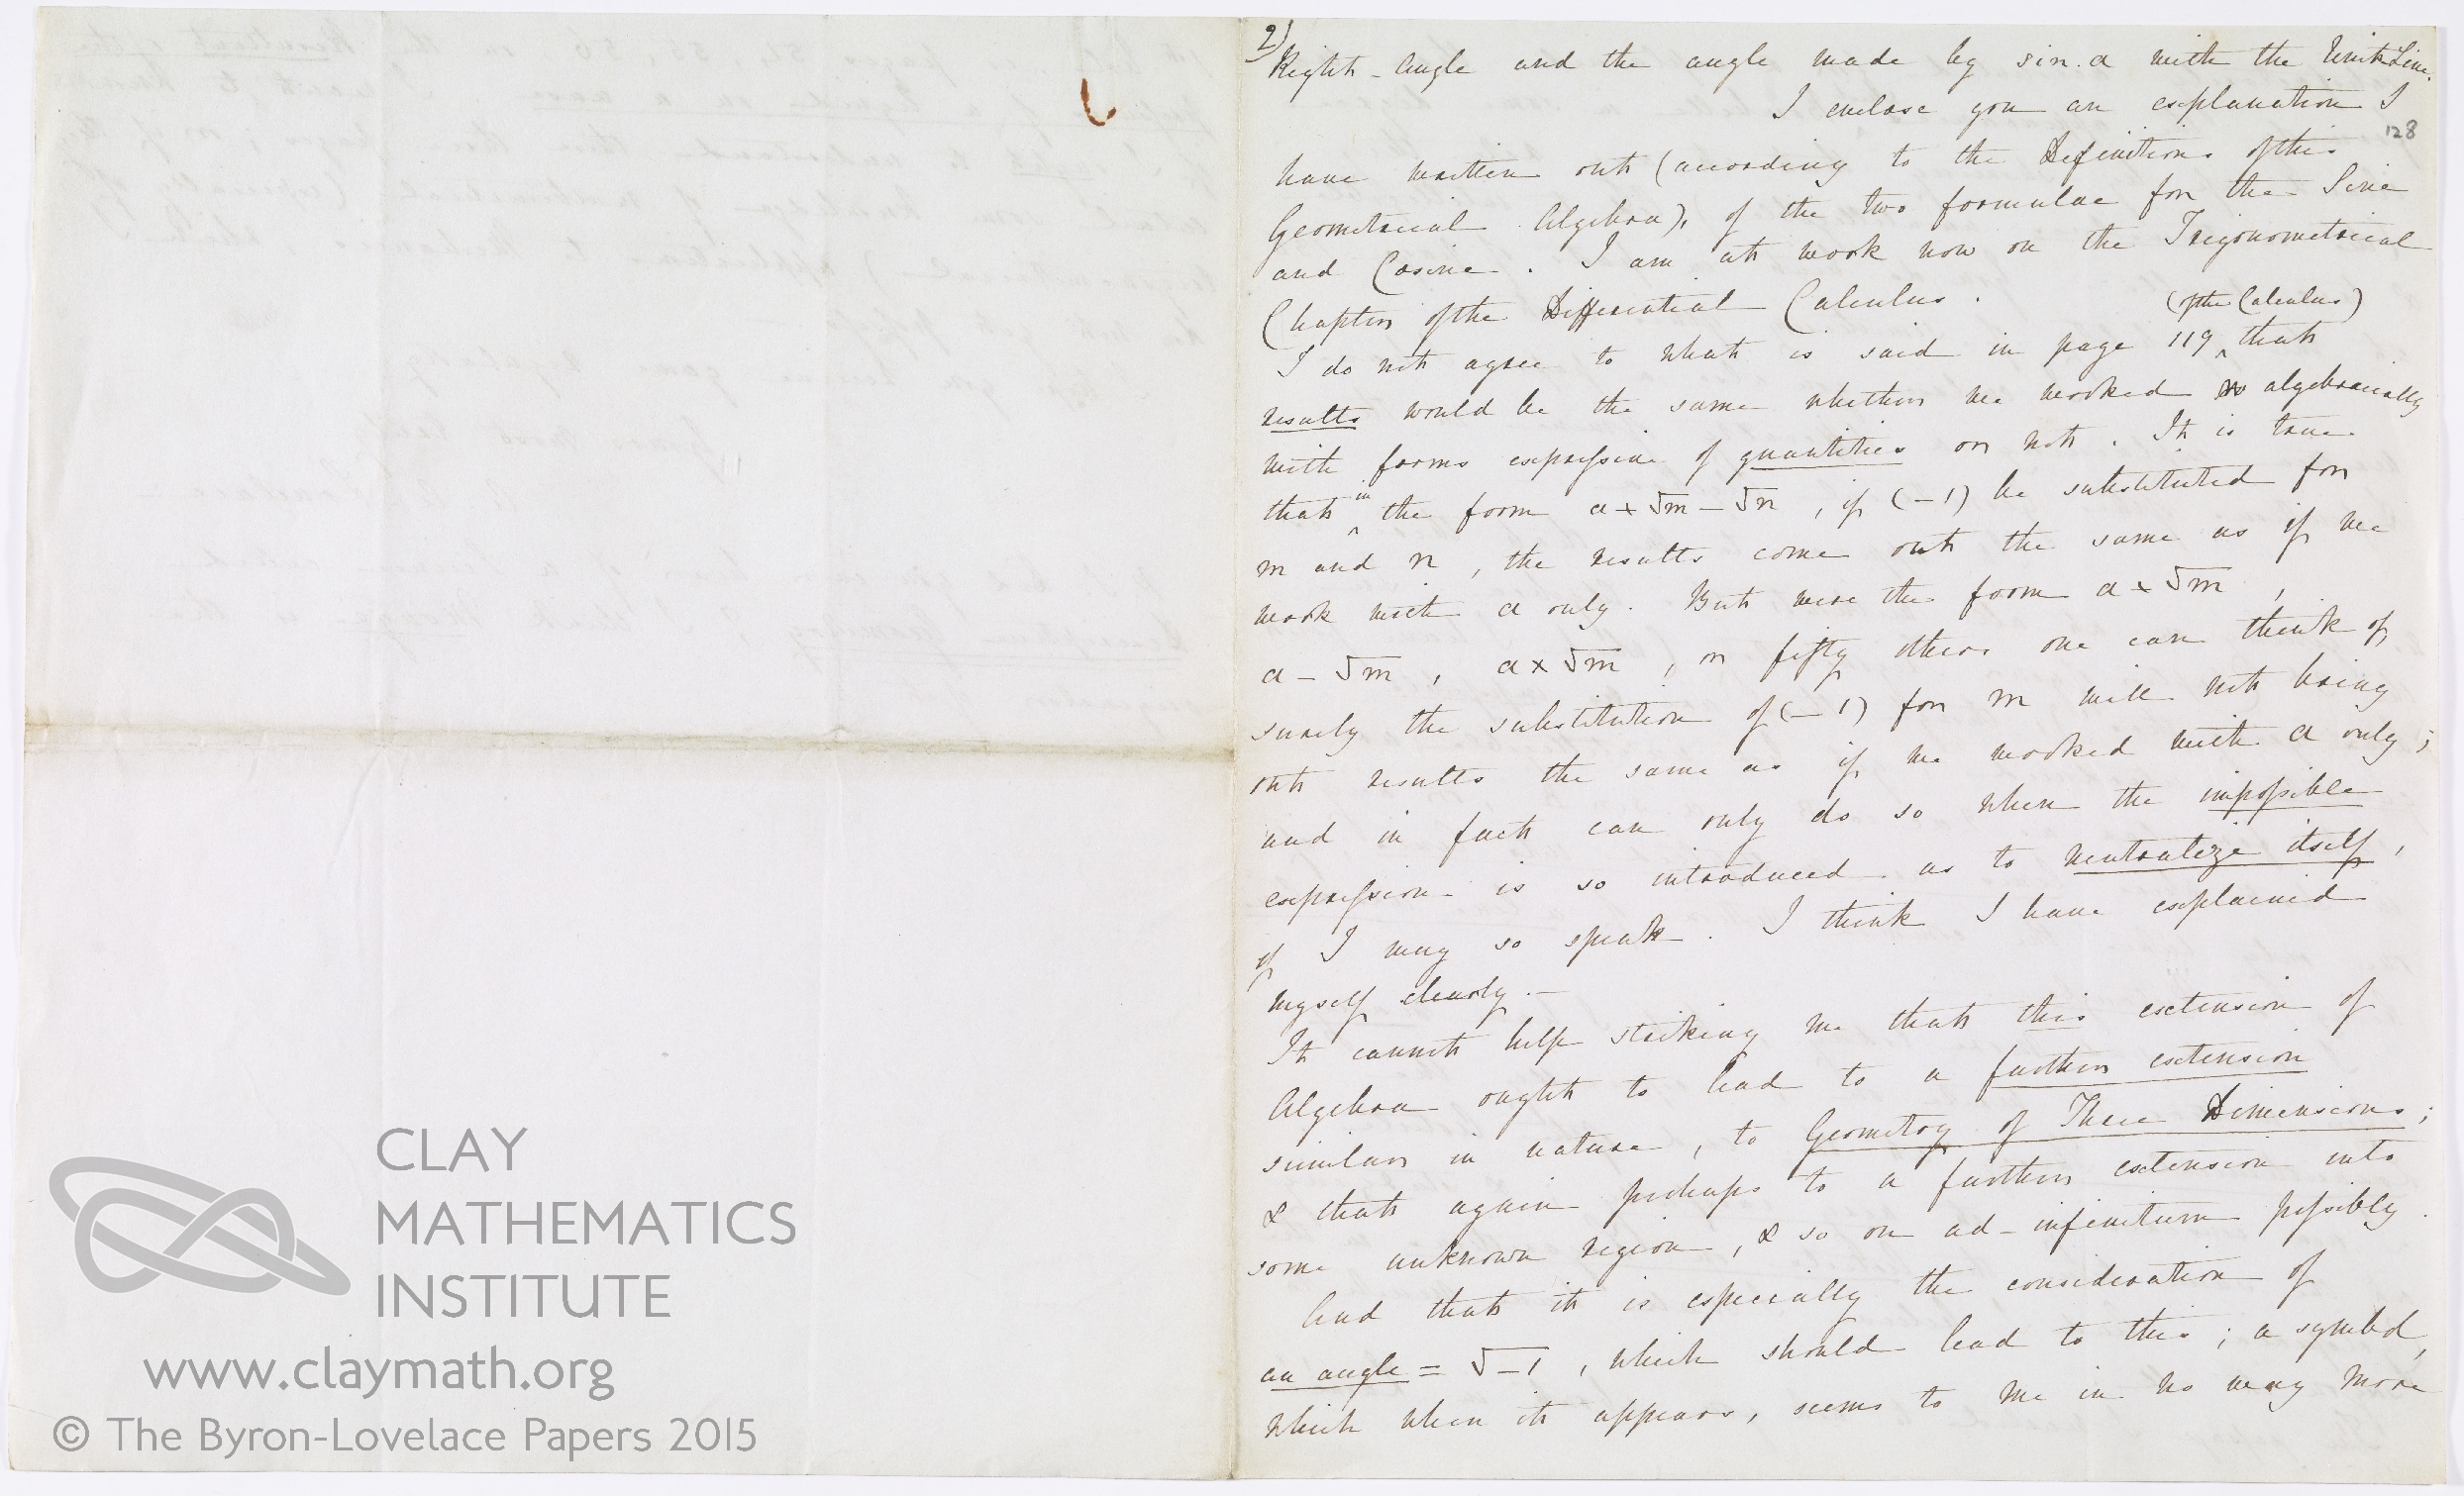 2)
Right-Angle and the angle made by sin. a with the Unit Line.
I enclose you an explanation I
128
have written out (according to the Definitions of this
Geometrical Algebra), of the two formulae for the Sine
and Cosine. I am at work now on the Trigonometrical
Chapter of the Differential Calculus.
(of the Calculus)
I do not agree to what is said in page 119 ‸ that
results would be the same whether we worked algebraically
with forms expressive of quantities or not. It is true
in
that ‸ the form a + √m − √n, if (−1) be substituted for
m and n, the results come out the same as if we
work with a only. But were the form a + √m,
a − √m, a × √m, or fifty others one can think of,
surely the substitution of (−1) for m will not bring
out results the same as if we worked with a only;
and in fact can only do so when the impossible
expression is so introduced as to neutralize itself,
if I may so speak. I think I have explained
myself clearly.—
It cannot help striking me that this extension of
Algebra ought to lead to a further extension
similar in nature, to Geometry of Three Dimensions;
& that again perhaps to a further extension into
some unknown region, & so on ad-infinitum possibly.
And that it is especially the consideration of
an angle = √−1, which should lead to this; a symbol,
which when it appears, seems to me in no way more
CLAY
MATHEMATICS
INSTITUTE
www.claymath.org
© The Byron-Lovelace Papers 2015